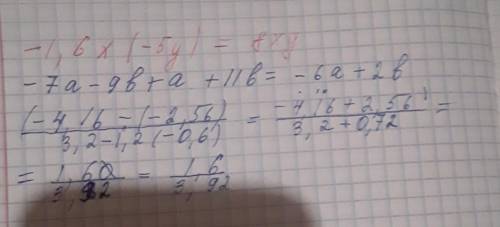 -1,6x(-5y) = 8xy
-7a-9b+a+11b = -6a+2b
(-4,16-(-2,56))/(3,2-1,2(-0,6)) = (-4,16+2,56)/(3,2+0,72) =
= 1,60/3,92 = 1,6/3,92